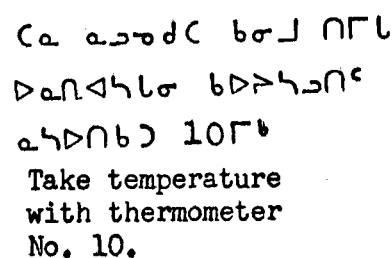 ᑕᓇ ᓇᓗᓀᑯᑕ ᑲᓂᒧ ᑎᒥᒐ
ᐅᓇᑎᐊᓴᒐᓂ ᑲᐅᔨᓴᓗᑎᑦ
ᓇᓴᐅᑎᑲᑐ 10ᒥᒃ
Take temperature
with thermometer
No. 10.